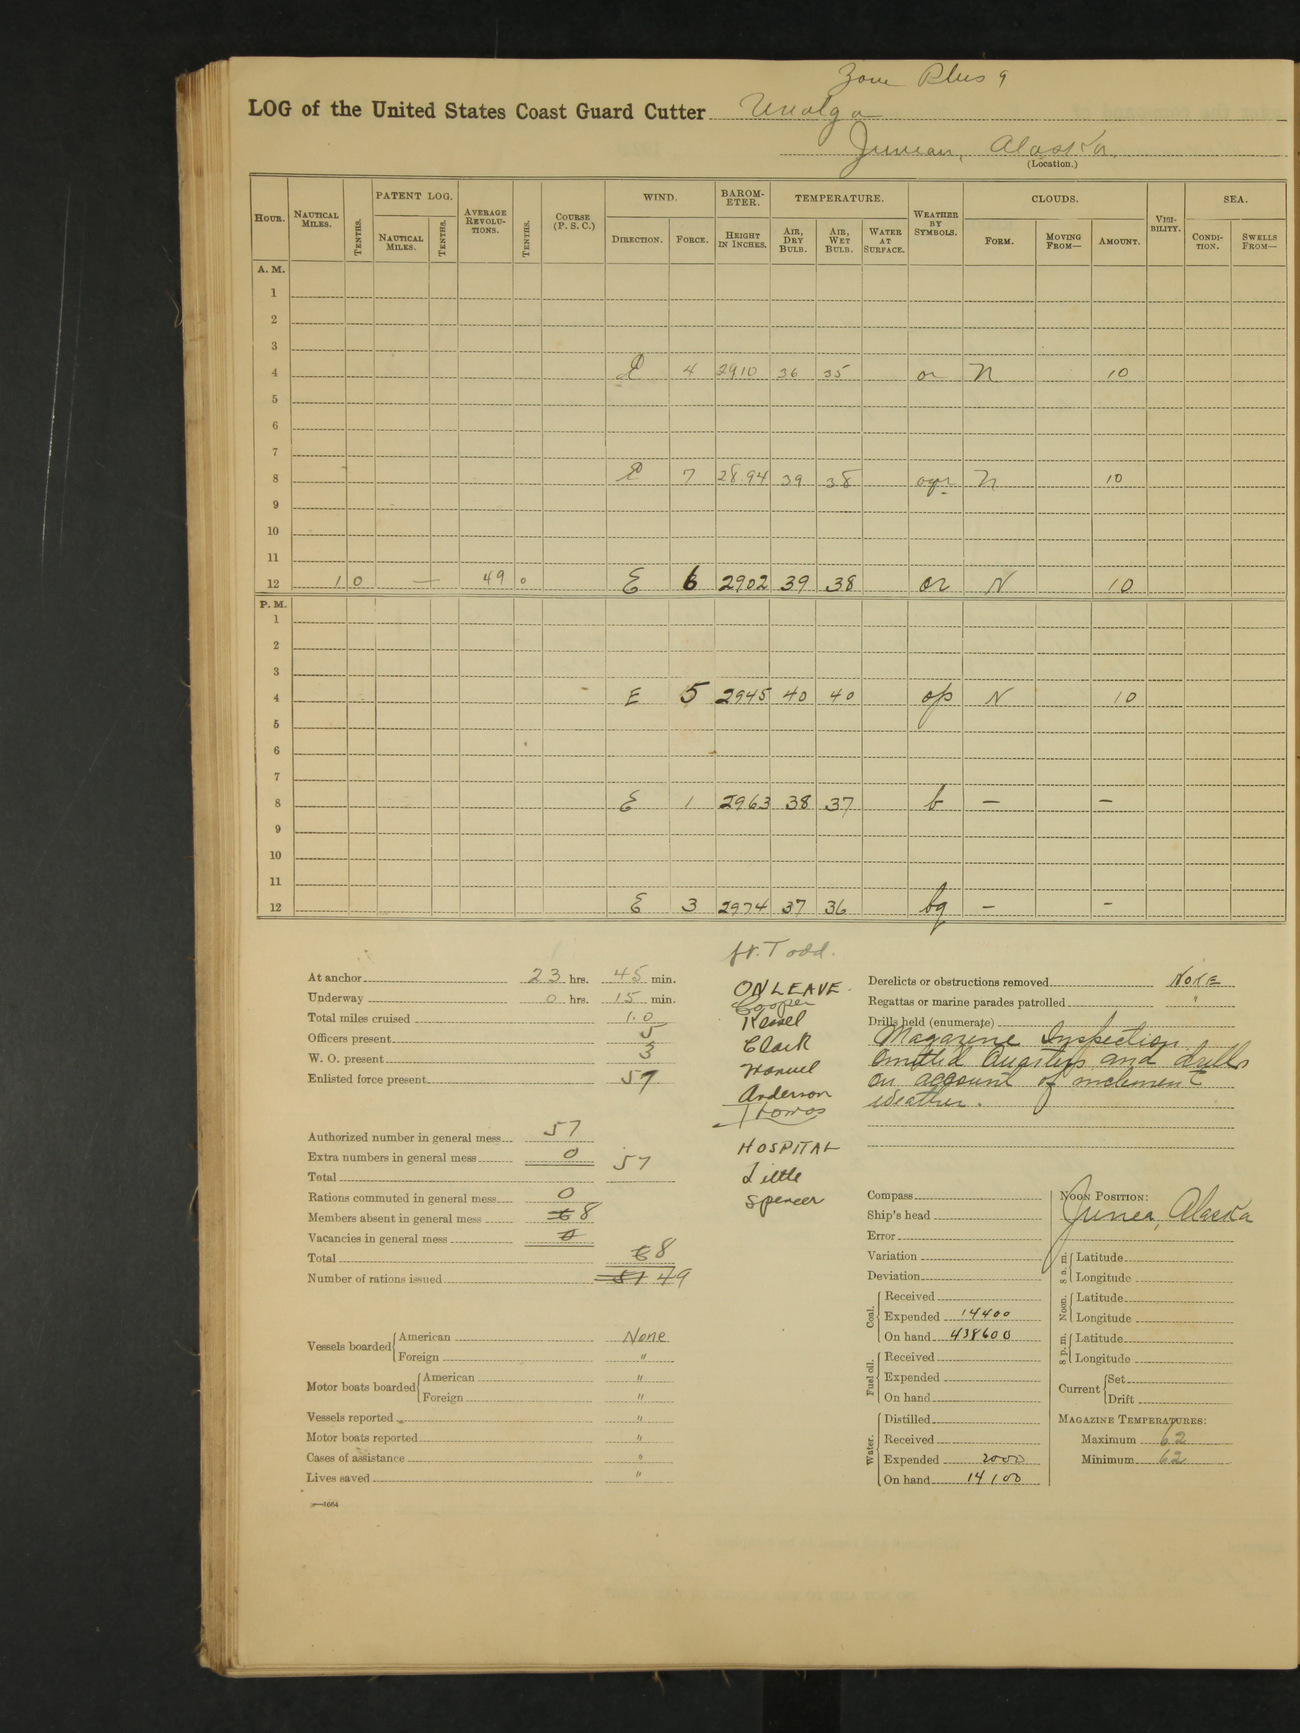 Zone Plus 9
LOG of the United States Coast Guard Cutter Unalga
Juneau, Alaska.
(Location.)
HOUR. NAUTICAL MILES. TENTHS. PATENT LOG. NAUTICAL MILES. TENTHS. AVERAGE REVOLUTIONS. TENTHS. COURSE (P. S. C.) WIND. DIRECTION. FORCE. BAROMETER. HEIGHT IN INCHES. TEMPERATURE. AIR, DRY BULB. AIR, WET BULB. WATER AT SURFACE. WEATHER BY SYMBOLS. CLOUDS. FORM. MOVING FROM— AMOUNT. VISIBILITY. SEA. CONDITION. SWELLS FROM—
A. M.
1
2
3
4 E 4 2910 36 35 or N 10
5
6
7
8 E 7 28.94 39 38 oqr N 10
9
10
11
12 1 0 — 49 0 E 6 2902 39 38 or N 10
P. M.
1
2
3
4 E 5 2945 40 40 op N 10
5
6
7
8 E 1 2963 38 37 b — —
9
10
11
12 E 3 2974 37 36 bq — —
At anchor 23 hrs. 45 min.
Underway 0 hrs. 15 min.
Total miles cruised 1.0
Officers present 5
W. O. present 3
Enlisted force present 57
Authorized number in general mess 57
Extra numbers in general mess 0
Total 57
Rations commuted in general mess 0
Members absent in general mess 6 8
Vacancies in general mess 0
Total 6 8
Number of rations issued 51 49
Vessels boarded American None
Foreign "
Motor boats boarded American "
Foreign "
Vessels reported "
Motor boats reported "
Cases of assistance "
Lives saved "
Todd.
ON LEAVE
Cooper
Clark
Manuel
Anderson
Thomas
HOSPITAL
Little
Spencer
Derelicts or obstructions removed NONE
Regattas or marine parades patrolled "
Drills held (enumerate)
Magazine Inspection
Omitted Quarters and drills
on account of inclement
weather.
Compass
Ship's head
Error
Variation
Deviation
Coal. Received
Expended 14400
On hand 438600
Fuel oil. Received
Expended
On hand
Water. Distilled
Received
Expended 2000
On hand 14100
NOON POSITION:
Junea, Alaska
8 a. m. Latitude
Longitude
Noon. Latitude
Longitude
8 p. m. Latitude
Longitude
Current Set
Drift
MAGAZINE TEMPERATURES:
Maximum 62
Minimum 62